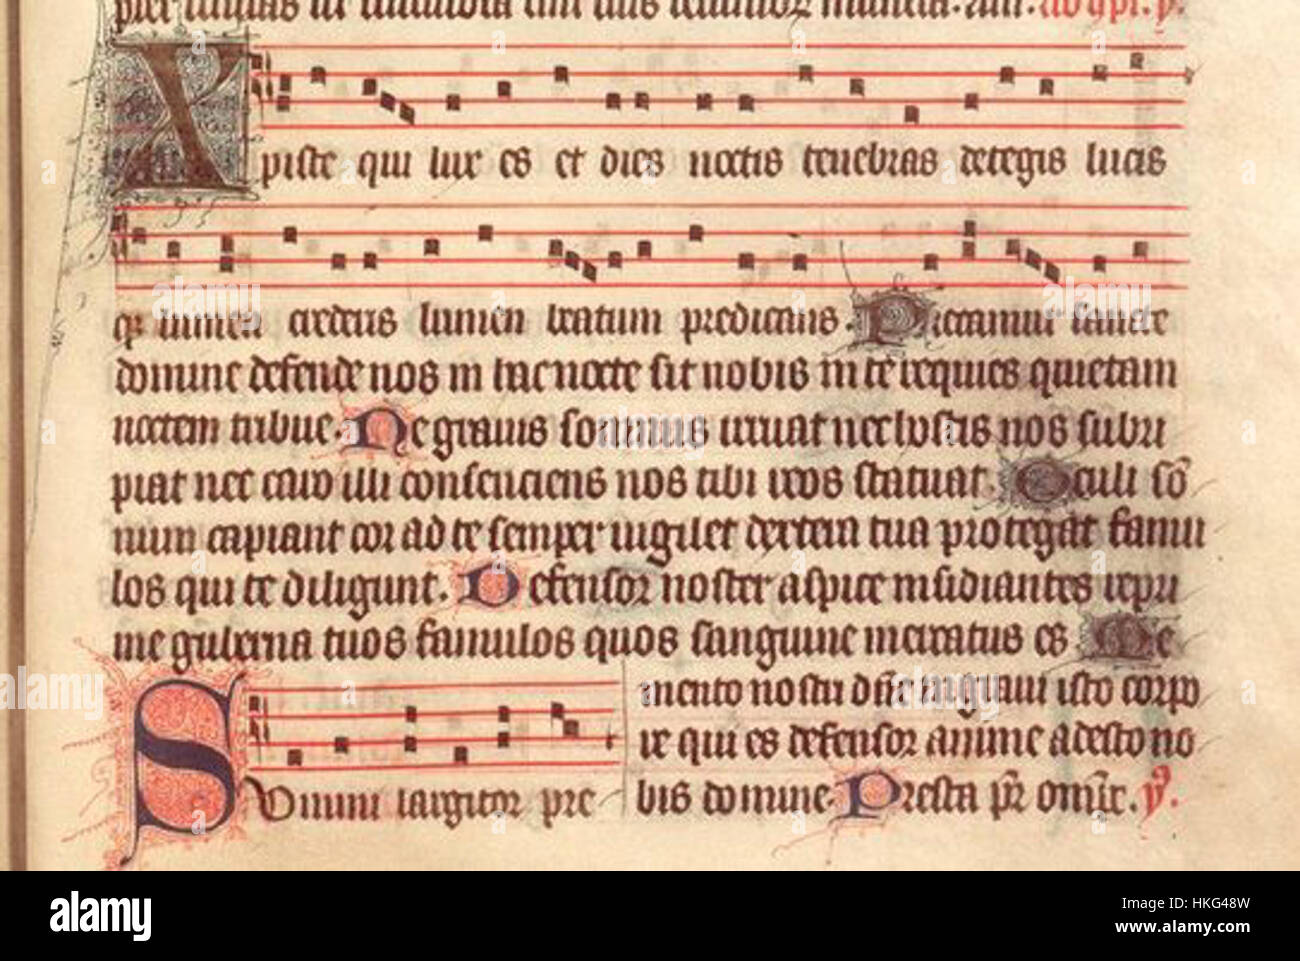 Xpiste qui lux es et dies noctis tenebras detegis lucis
qz lumen crederis lumen beatum predicans. Precamur sancte
domine defende nos in hac nocte sit nobis in te requies quietam
noctem tribue. Ne grauis sompnus irruat nec hostis nos subri
piat nec caro illi consenciens nos tibi reos statuat. Oculi sō
num capiant cor ad te semper uigilet dextera tua protegat famu
los qui te diligunt. Defensor noster aspice insidiantes repri
me guberna tuos famulos quos sanguine mercatus es Me
mento nostri dn̄e in graui isto corpo
re qui es defensor anime adesto no
bis domine. Presta pr̄ om̄x. ℣.
Sompni largitor pre
alamy
Image ID: HKG48W
www.alamy.com